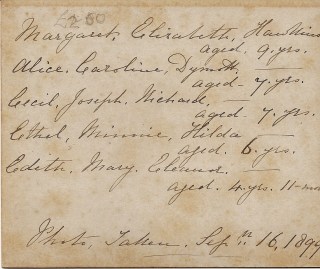 £2.50
Margaret, Elizabeth, Hawkins
aged. 9. yrs.
Alice. Caroline, Dymott.
aged. 7. yrs.
Cecil, Joseph. Richard.
aged. 7. yrs.
Ethel, Minnie, Hilda
aged. 6. yrs.
Edith. Mary. Eleanor.
aged. 4. yrs. 11-mo
Photo, Taken. Sep. 16, 189